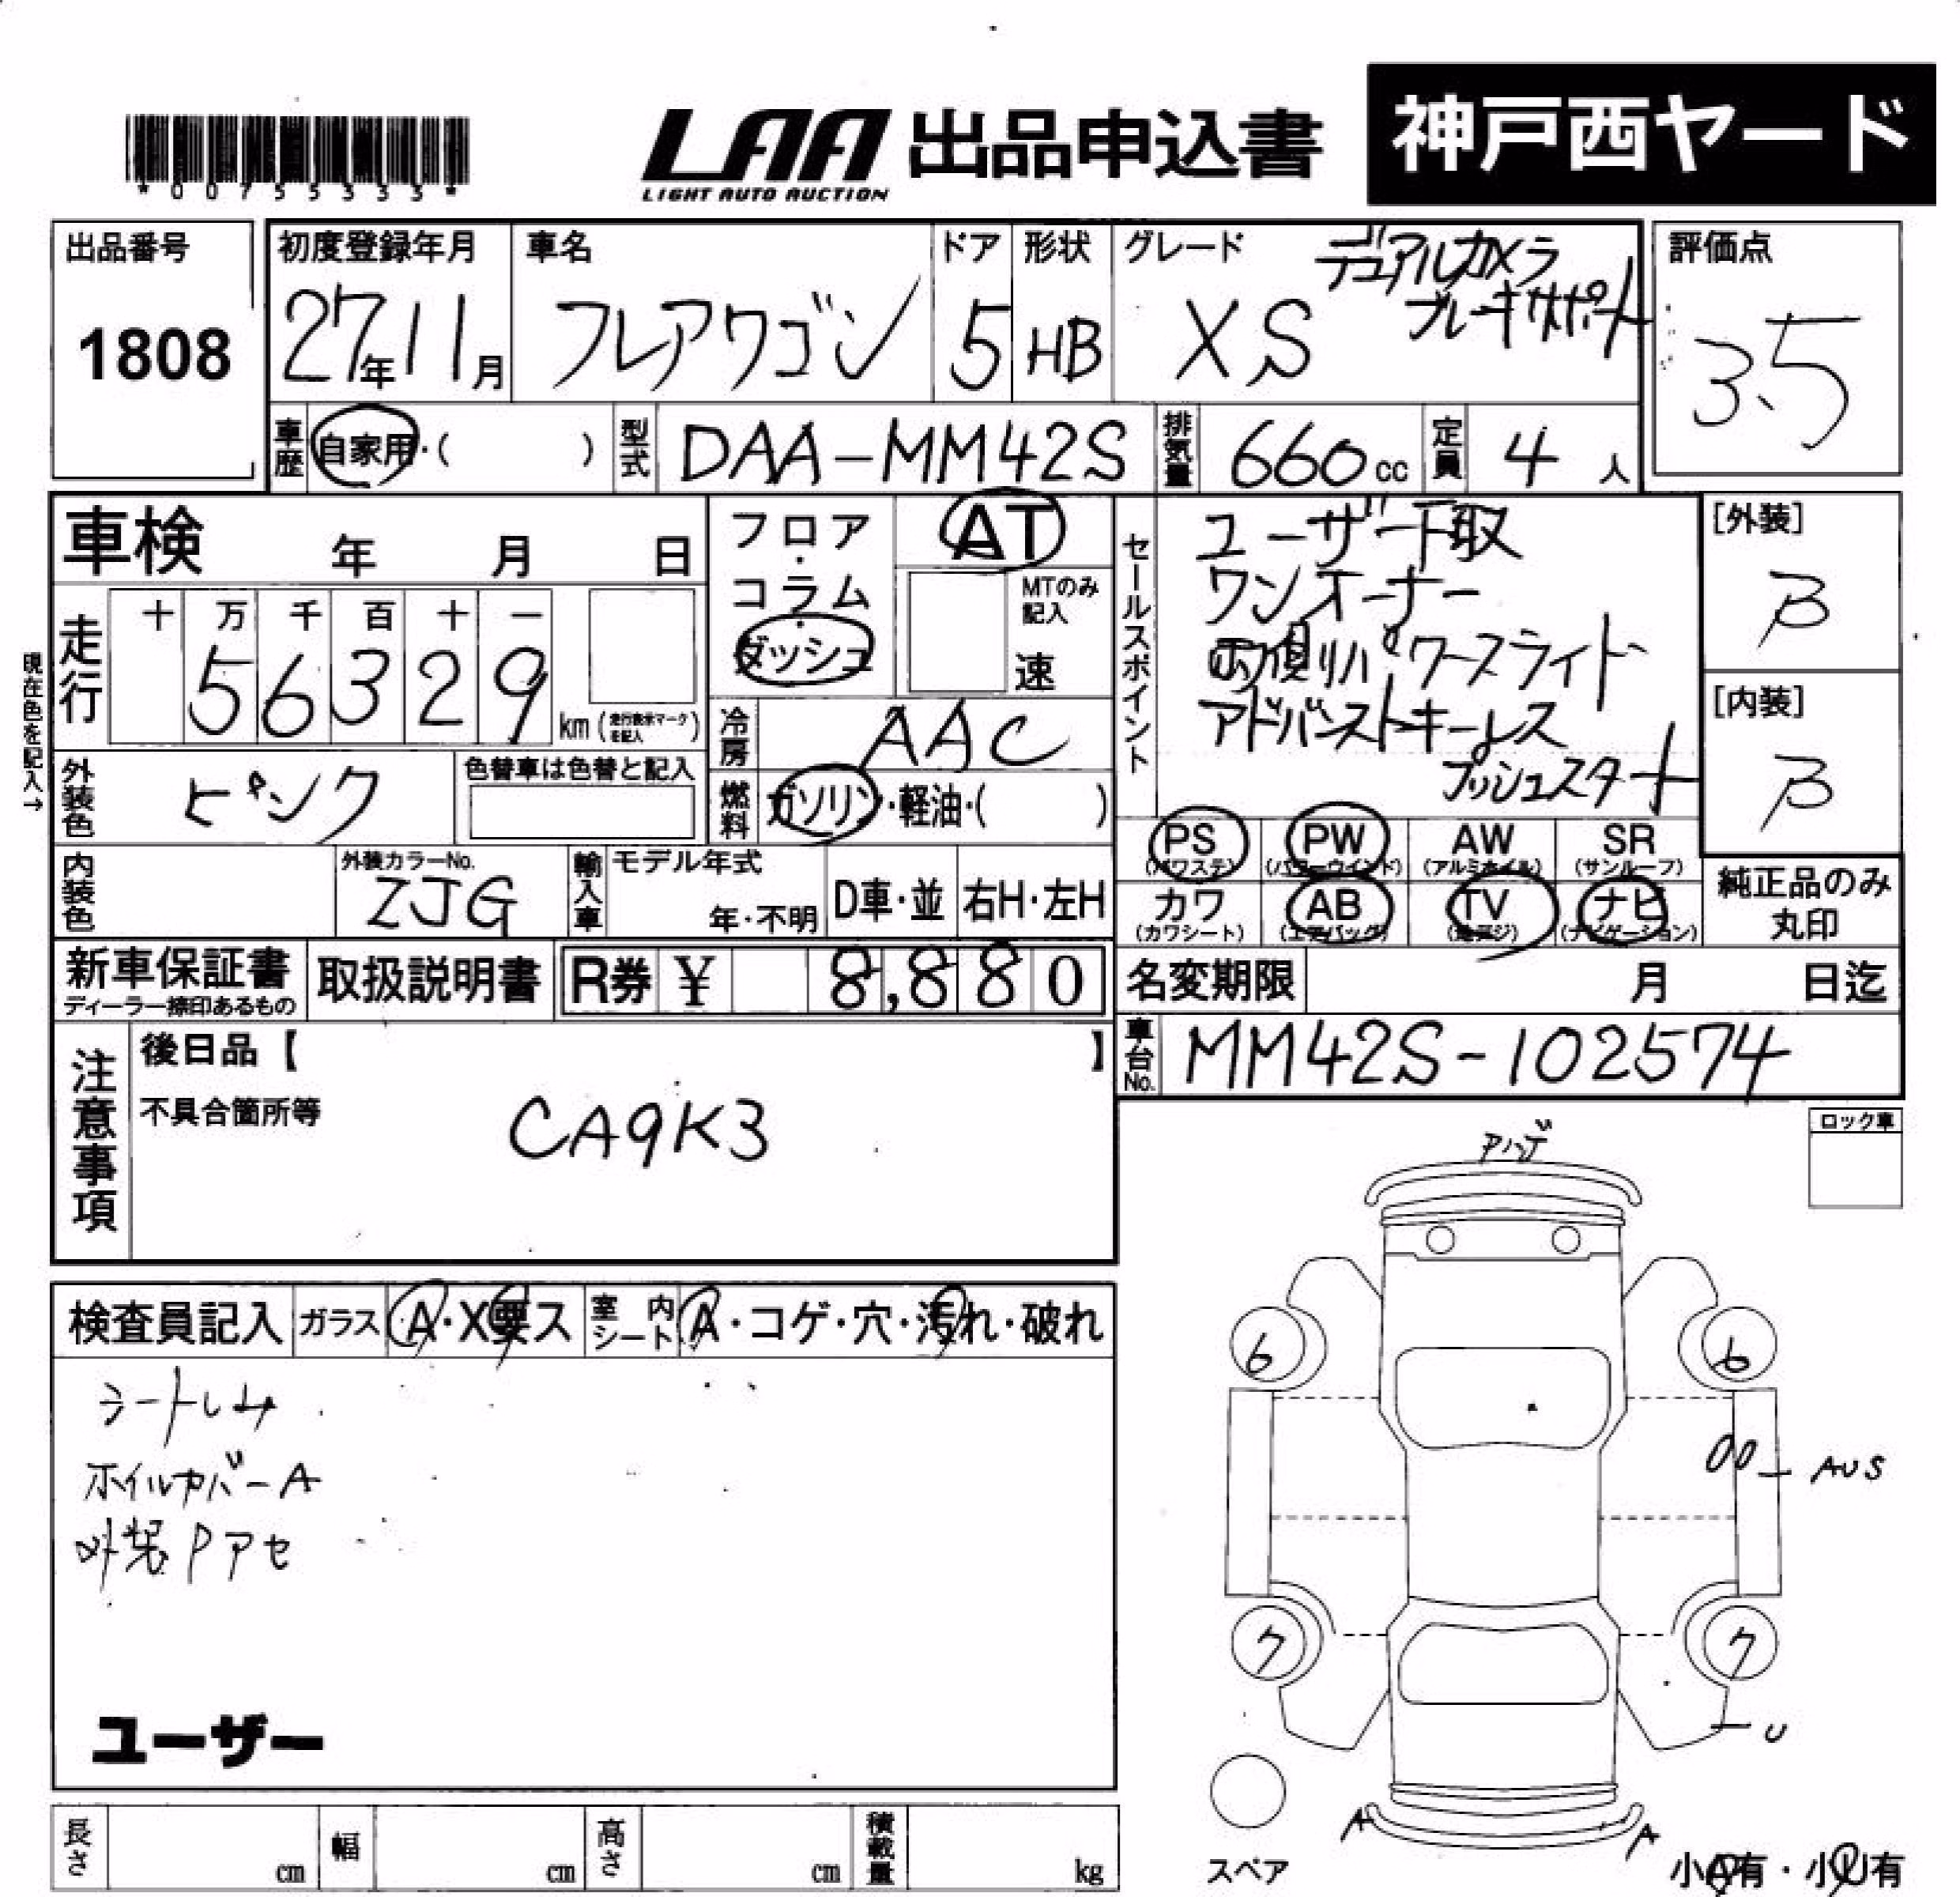 *00755333*
LAA 出品申込書 神戸西ヤード
LIGHT AUTO AUCTION
出品番号 1808
初度登録年月 27年11月
車名 フレアワゴン
ドア 5
形状 HB
グレード XS デュアルカメラ
ブレーキサポート
評価点 3.5
車歴 自家用・( )
型式 DAA-MM42S
排気量 660cc
定員 4人
車検 年 月 日
フロア・コラム・ダッシュ
AT
MTのみ記入
速
セールスポイント
ユーザー下取
ワンオーナー
両側パワースライド
アドバンストキーレス
プッシュスタート
[外装] B
[内装] B
現在色を記入→
走行 十 万 千 百 十 一
56329 km (走行表示マークを記入)
冷房 AAC
外装色 ピンク
色替車は色替と記入
燃料 ガソリン・軽油・( )
PS (パワステ) PW (パワーウインド) AW (アルミホイル) SR (サンルーフ)
カワ (カワシート) AB (エアバッグ) TV (地デジ) ナビ (ナビゲーション)
純正品のみ丸印
内装色
外装カラーNo. ZJG
輸入車 モデル年式 年・不明 D車・並 右H・左H
新車保証書 ディーラー捺印あるもの
取扱説明書
R券 ¥ 8,880
名変期限 月 日迄
車台No. MM42S-102574
注意事項
後日品【 】
不具合箇所等
CA9K3
ロック車
検査員記入 ガラス A・X要ス 室内シート A・コゲ・穴・汚れ・破れ
シートシム
ホイルカバーA
外装Pアセ
ユーザー
6 6
AUS
ク ク
U
A A
スペア
小A有・小U有
長さ cm 幅 cm 高さ cm 積載量 kg